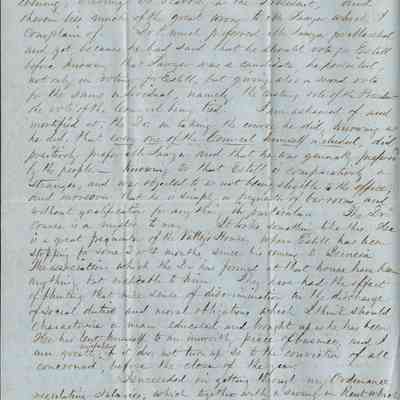 therein lies much of the great wrong to Mr Sawyer which I
complain of. Dr L much preferred Mr Sawyer
and yet because he had said that he should vote for Estill
before knowing that Sawyer was a candidate, he persisted,
not only in voting for Estill, but giving also a second vote
for the same individual, namely, the casting vote of the
the vote of the Council being tied. I am ashamed of and
mortified at the Dr in taking the course he did, knowing as
he did, that every one of the Council himself included, did
positively prefer Mr Sawyer and that he was generally preferred
by the people — knowing to that Estill is comparatively a
stranger, and was objected to as not being eligible to the office,
and moreover that he is simply a frequenter of bar rooms, and
without qualification for any thing in particular. The Dr's
course is a mystery to many. It looks something like this. He
is a great frequenter of the Vallejo House, where Estill has been
stopping for some months since his coming to Benicia
The associations which the Dr has formed at that house have been
anything but creditable to him. They have had the effect
of blunting that nice sense of discrimination in the discharge
of social duties and moral obligations which I think should
characterize a man educated and brought up as he has been.
He has lent himself to an unworthy piece of business, and I
am greatly if it do not turn up so to the conviction of all
concerned, before the close of the year.
I succeeded in getting through my Ordinance
regulating salaries, which together with a saving in Rent which